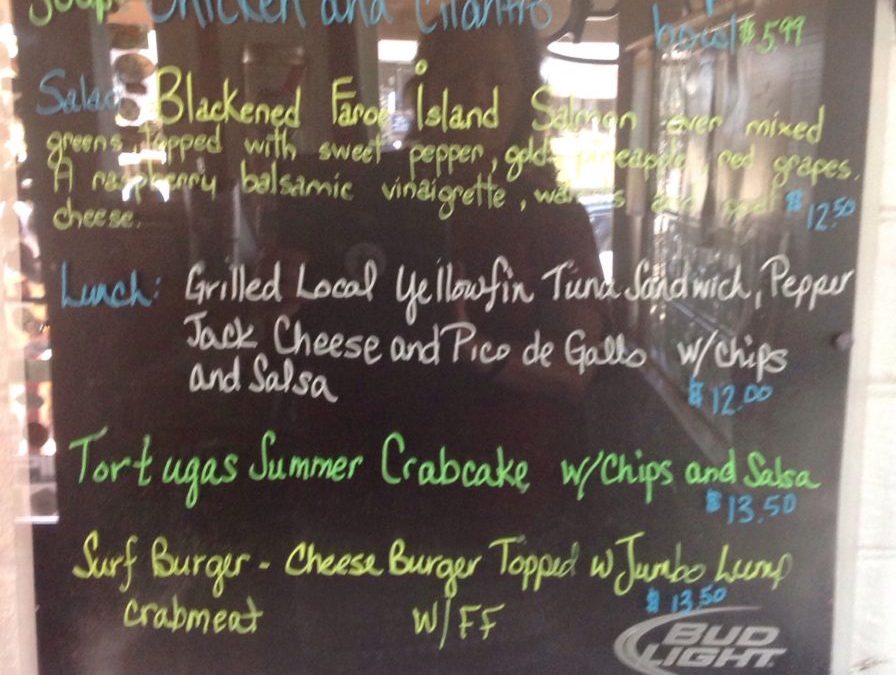 Soup: Chicken and Cilantro
bowl $5.99
Salad: Blackened Faroe Island Salmon over mixed
greens, topped with sweet pepper, gold pineapple, red grapes.
A raspberry balsamic vinaigrette, walnuts and
cheese. $12.50
Lunch: Grilled Local Yellowfin Tuna Sandwich, Pepper
Jack Cheese and Pico de Gallo w/Chips
and Salsa $12.00
Tortugas Summer Crabcake w/Chips and Salsa
$13.50
Surf Burger - Cheese Burger Topped w Jumbo Lump
$13.50
Crabmeat W/FF
BUD
LIGHT